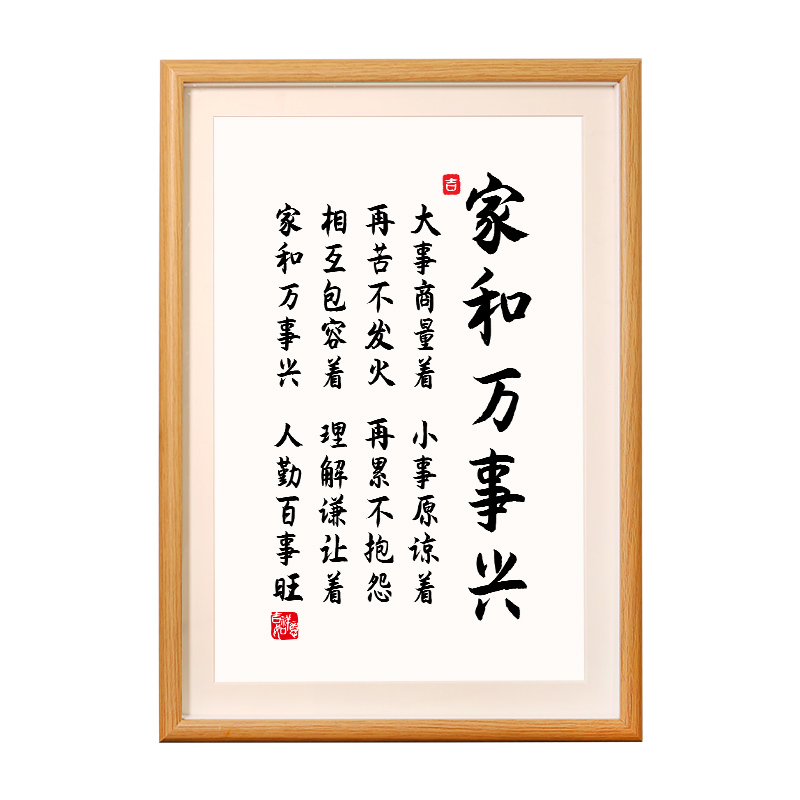 家和万事兴
吉
大事商量着 小事原谅着
再苦不发火 再累不抱怨
相互包容着 理解谦让着
家和万事兴 人勤百事旺